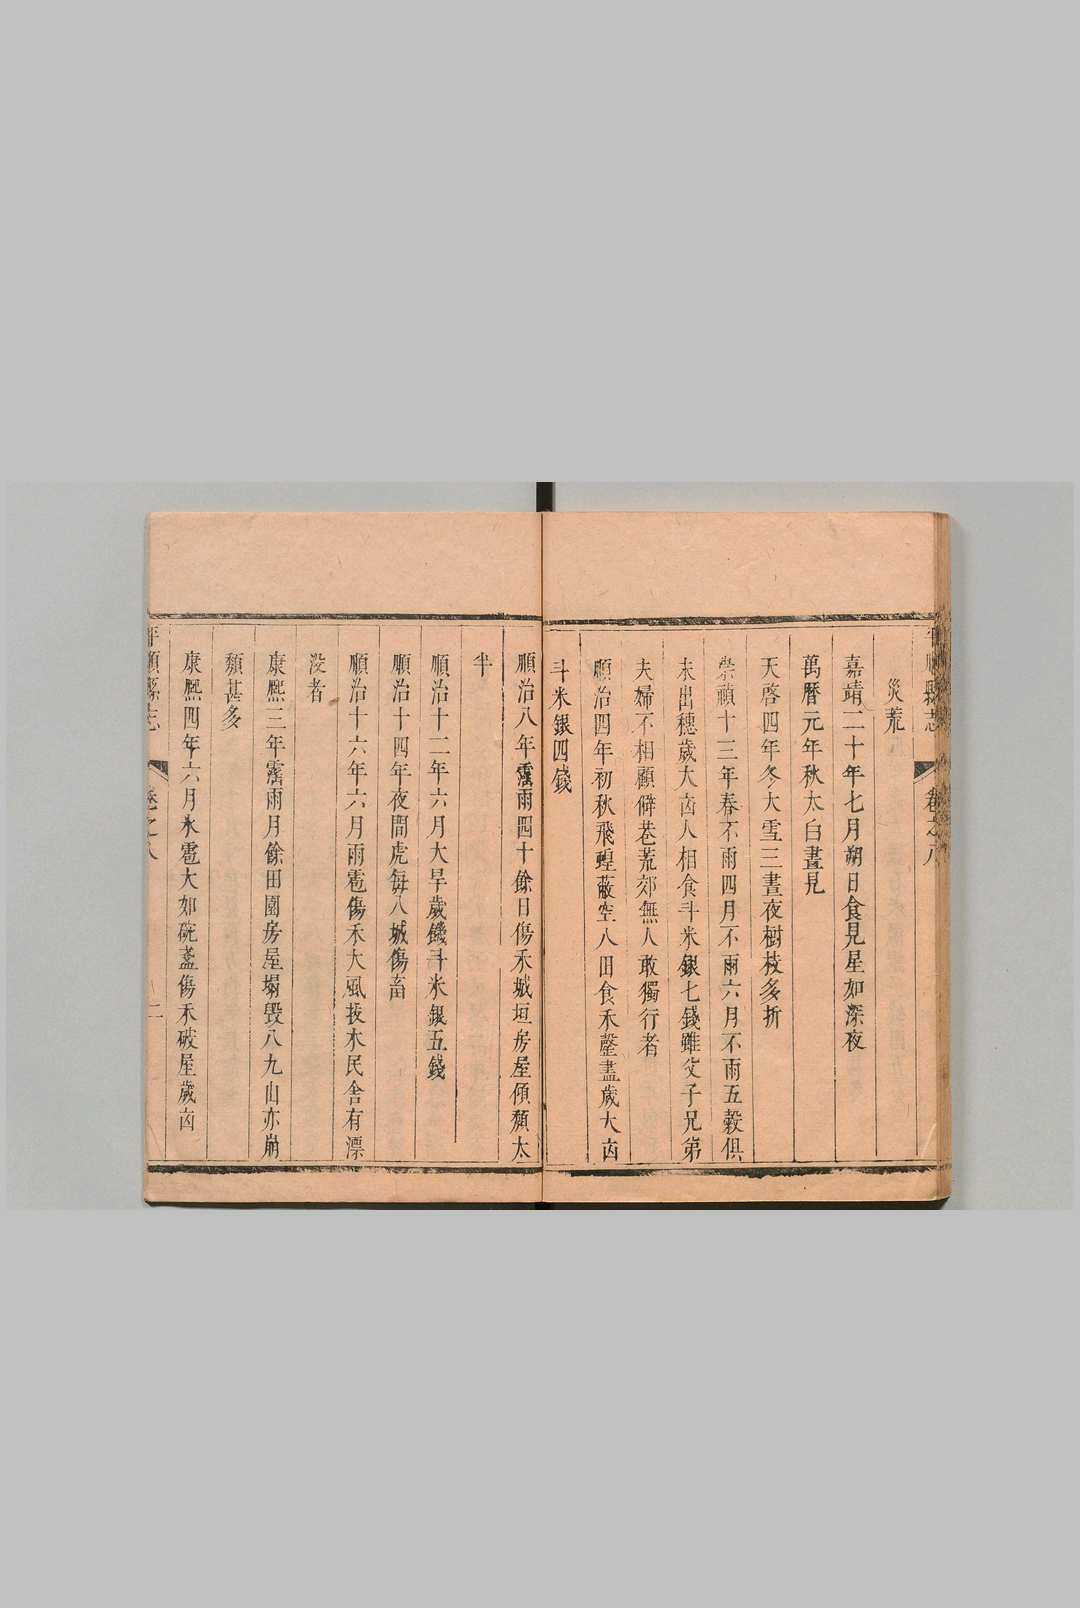 災荒
嘉靖二十年七月朔日食見星如深夜
萬曆元年秋太白晝見
天啓四年冬大雪三晝夜樹枝多折
崇禎十三年春不雨四月不雨六月不雨五穀俱
未出穗歲大凶人相食斗米銀七錢雖父子兄弟
夫婦不相顧僻巷荒郊無人敢獨行者
順治四年初秋飛蝗蔽空入田食禾罄盡歲大凶
斗米銀四錢
順治八年霪雨四十餘日傷禾城垣房屋傾頽太
半
順治十二年六月大旱歲饑斗米銀五錢
順治十四年夜間虎每入城傷畜
順治十六年六月雨雹傷禾大風拔木民舍有漂
没者
康熙三年霪雨月餘田園房屋塌毁八九山亦崩
頽甚多
康熙四年六月氷雹大如碗盞傷禾破屋歲凶
平順縣志 卷之八 二